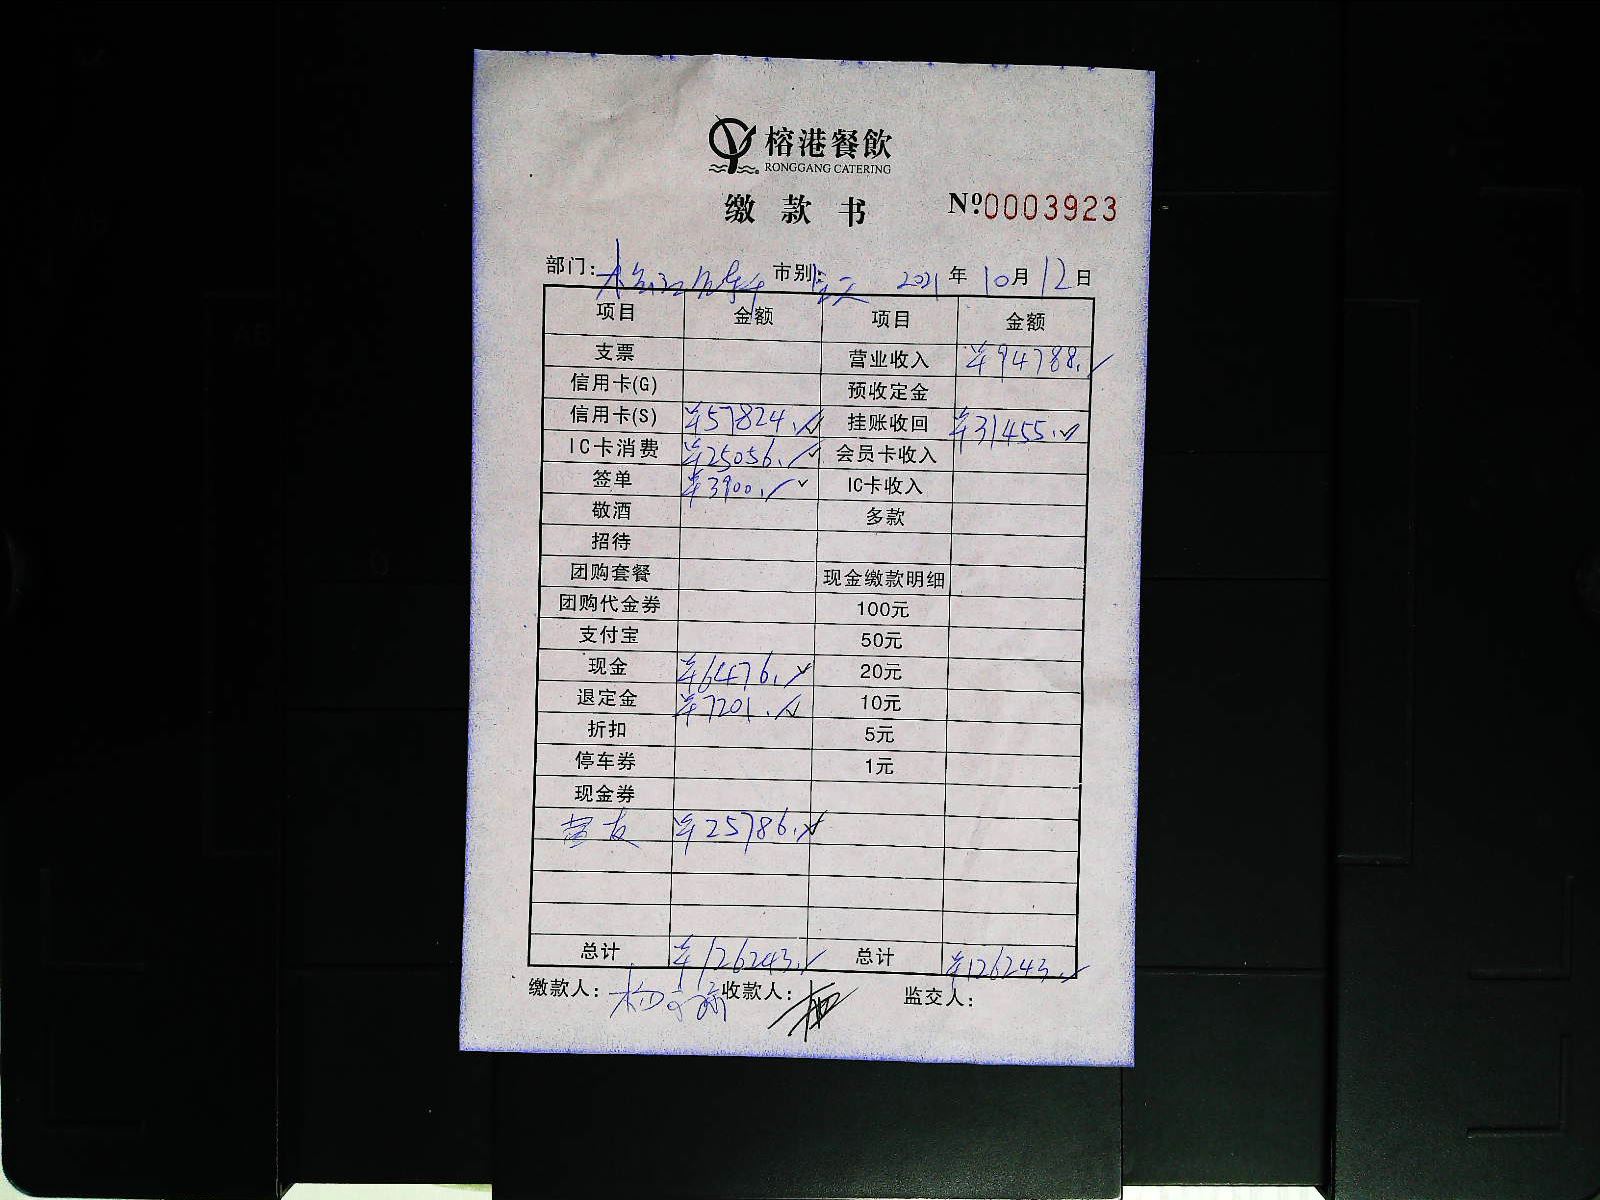 榕港餐飲
RONGGANG CATERING
缴款书 №0003923
部门: 市别: 全天 2021年10月12日
项目 金额 项目 金额
支票 营业收入 ¥94788.
信用卡(G) 预收定金
信用卡(S) ¥57824. 挂账收回 ¥31455.
IC卡消费 ¥25056. 会员卡收入
签单 ¥3900. IC卡收入
敬酒 多款
招待
团购套餐 现金缴款明细
团购代金券 100元
支付宝 50元
现金 ¥6476. 20元
退定金 ¥7201. 10元
折扣 5元
停车券 1元
现金券
¥25786.
总计 ¥126243. 总计 ¥126243.
缴款人: 收款人: 监交人: